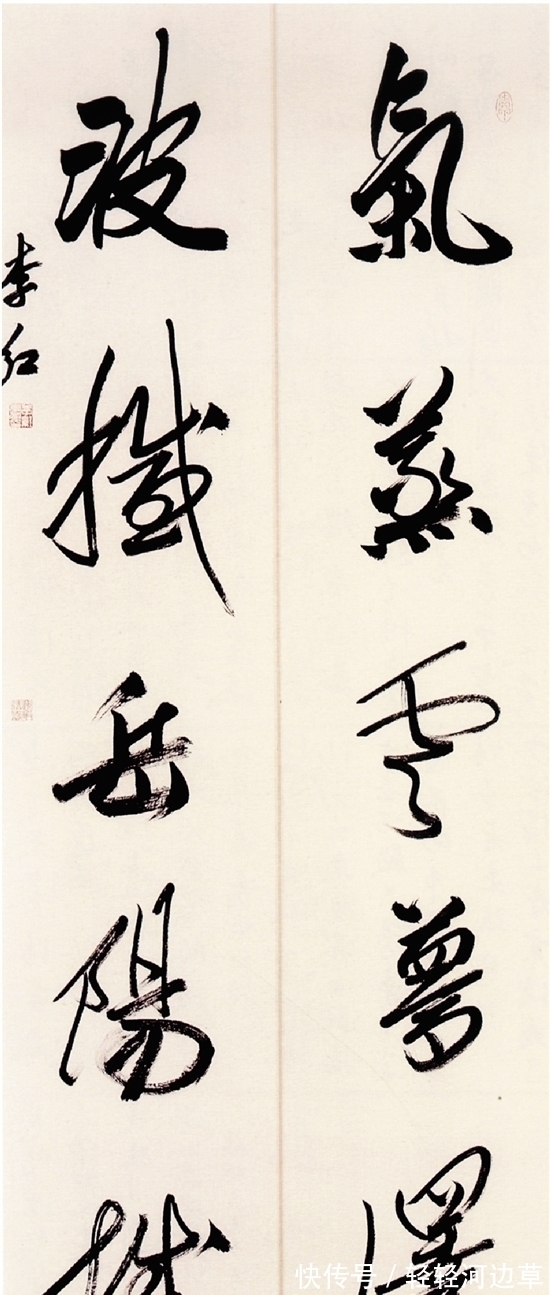 氣蒸雲夢澤
波撼岳陽城
李红
快传号 / 轻轻河边草